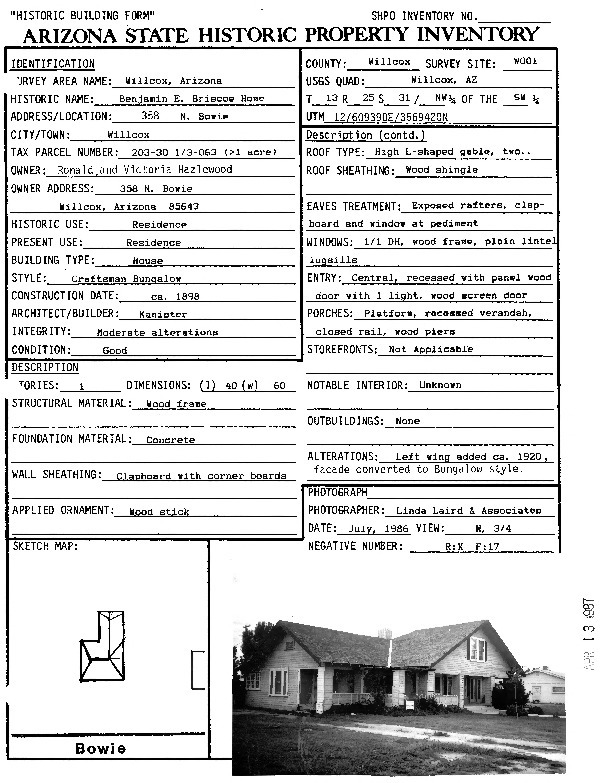 "HISTORIC BUILDING FORM"
SHPO INVENTORY NO.
ARIZONA STATE HISTORIC PROPERTY INVENTORY
IDENTIFICATION
URVEY AREA NAME: Willcox, Arizona
HISTORIC NAME: Benjamin E. Briscoe Home
ADDRESS/LOCATION: 358 N. Bowie
CITY/TOWN: Willcox
TAX PARCEL NUMBER: 203-30 1/3-063 (>1 acre)
OWNER: Ronald and Victoria Hazlewood
OWNER ADDRESS: 358 N. Bowie
Willcox, Arizona 85643
HISTORIC USE: Residence
PRESENT USE: Residence
BUILDING TYPE: House
STYLE: Craftsman Bungalow
CONSTRUCTION DATE: ca. 1898
ARCHITECT/BUILDER: Kanister
INTEGRITY: Moderate alterations
CONDITION: Good
DESCRIPTION
TORIES: 1 DIMENSIONS: (l) 40 (w) 60
STRUCTURAL MATERIAL: Wood frame
FOUNDATION MATERIAL: Concrete
WALL SHEATHING: Clapboard with corner boards
APPLIED ORNAMENT: Wood stick
COUNTY: Willcox SURVEY SITE: W001
USGS QUAD: Willcox, AZ
T 13 R 25 S 31/ NW¼ OF THE SW ¼
UTM 12/609390E/3569420N
Description (contd.)
ROOF TYPE: High L-shaped gable, two..
ROOF SHEATHING: Wood shingle
EAVES TREATMENT: Exposed rafters, clap-
board and window at pediment
WINDOWS: 1/1 DH, wood frame, plain lintel
lugsills
ENTRY: Central, recessed with panel wood
door with 1 light, wood screen door
PORCHES: Platform, recessed verandah,
closed rail, wood piers
STOREFRONTS: Not Applicable
NOTABLE INTERIOR: Unknown
OUTBUILDINGS: None
ALTERATIONS: Left wing added ca. 1920,
facade converted to Bungalow style.
PHOTOGRAPH
PHOTOGRAPHER: Linda Laird & Associates
DATE: July, 1986 VIEW: N, 3/4
NEGATIVE NUMBER: R:X F:17
SKETCH MAP:
Bowie
APR 13 1987